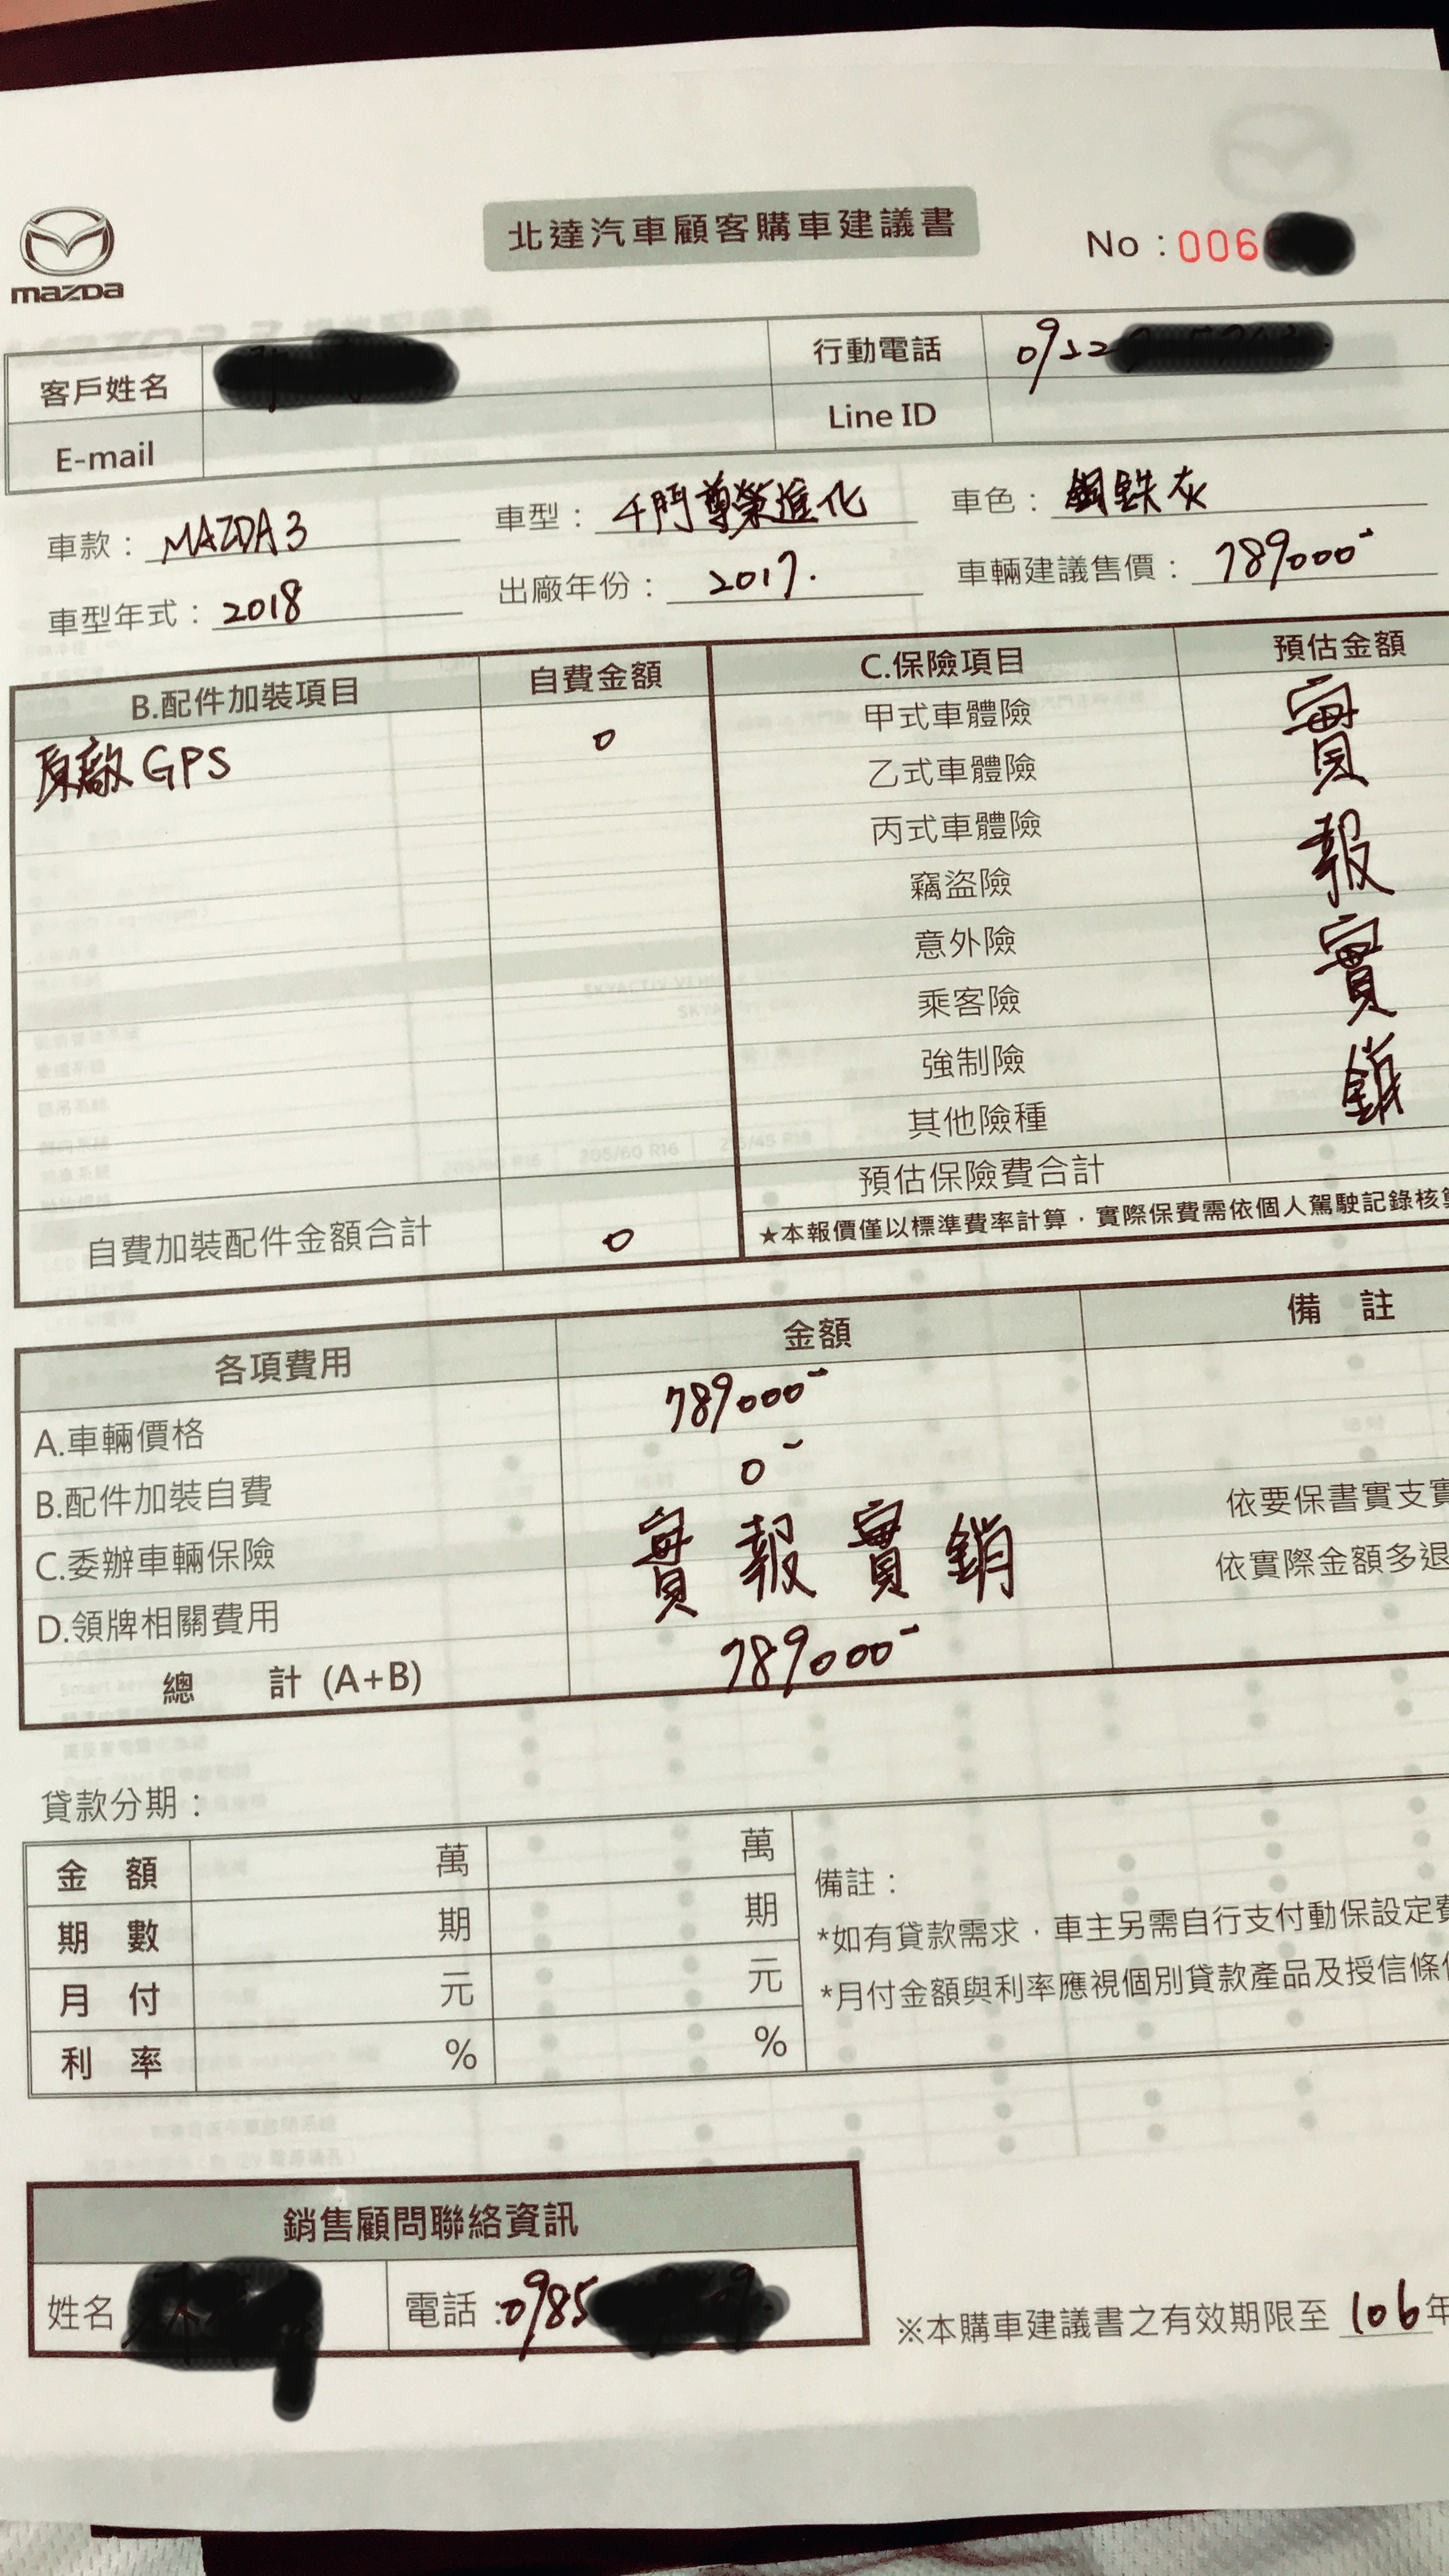 北達汽車顧客購車建議書
No：006
mazda
客戶姓名 行動電話 0922
E-mail Line ID
車款：MAZDA3 車型：4門尊榮進化 車色：鋼鉄灰
車型年式：2018 出廠年份：2017. 車輛建議售價：789000-
B.配件加裝項目 自費金額 C.保險項目 預估金額
原廠GPS 0 甲式車體險 實報實銷
乙式車體險
丙式車體險
竊盜險
意外險
乘客險
強制險
其他險種
預估保險費合計
自費加裝配件金額合計 0 ★本報價僅以標準費率計算，實際保費需依個人駕駛記錄核
各項費用 金額 備 註
A.車輛價格 789000-
B.配件加裝自費 0-
C.委辦車輛保險 實報實銷 依要保書實支實
D.領牌相關費用 依實際金額多退
總 計 (A+B) 789000-
貸款分期：
金 額 萬 萬 備註：
期 數 期 期 *如有貸款需求，車主另需自行支付動保設定費
月 付 元 元 *月付金額與利率應視個別貸款產品及授信條
利 率 % %
銷售顧問聯絡資訊
姓名 電話：0985
※本購車建議書之有效期限至 106年